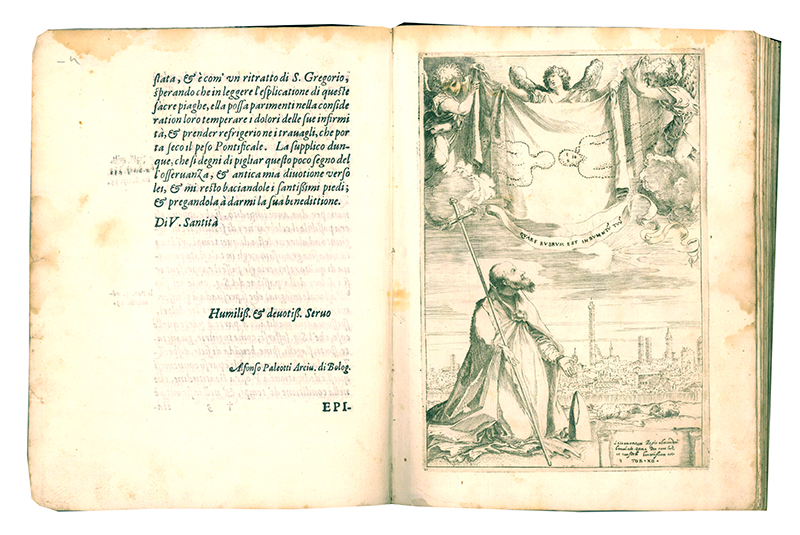 stata, & è com' vn ritratto di S. Gregorio;
sperando che in leggere l'esplicatione di queste
sacre piaghe, ella possa parimenti nella conside
ration loro temperare i dolori delle sue infirmi
tà, & prender refrigerio ne i trauagli, che por
ta seco il peso Pontificale. La supplico dun-
que, che si degni di pigliar questo poco segno del
l'osseruanza, & antica mia diuotione verso
lei, & mi resto baciandole i santissimi piedi;
& pregandola à darmi la sua benedittione.
Di V. Santità
Humiliss. & deuotiss. Seruo
Alfonso Paleotti Arciu. di Bolog.
EPI-
QVARE RVBRVM EST INDVMENTV TVV